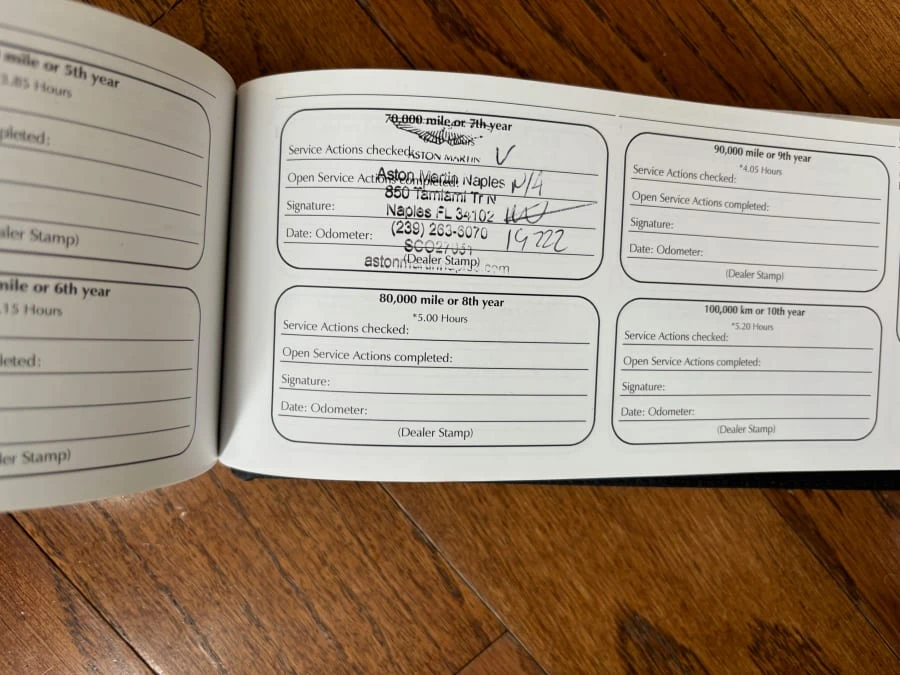 mile or 5th year
3.85 Hours
pleted:
aler Stamp)
mile or 6th year
.15 Hours
leted:
ler Stamp)
70,000 mile or 7th year
Hours
Service Actions checked:
ASTON MARTIN V
Open Service Actions completed:
Aston Martin Naples N/A
850 Tamiami Tr N
Signature:
Naples FL 34102
(239) 263-6070
Date: Odometer: 19222
(Dealer Stamp)
80,000 mile or 8th year
*5.00 Hours
Service Actions checked:
Open Service Actions completed:
Signature:
Date: Odometer:
(Dealer Stamp)
90,000 mile or 9th year
*4.05 Hours
Service Actions checked:
Open Service Actions completed:
Signature:
Date: Odometer:
(Dealer Stamp)
100,000 km or 10th year
*5.20 Hours
Service Actions checked:
Open Service Actions completed:
Signature:
Date: Odometer:
(Dealer Stamp)